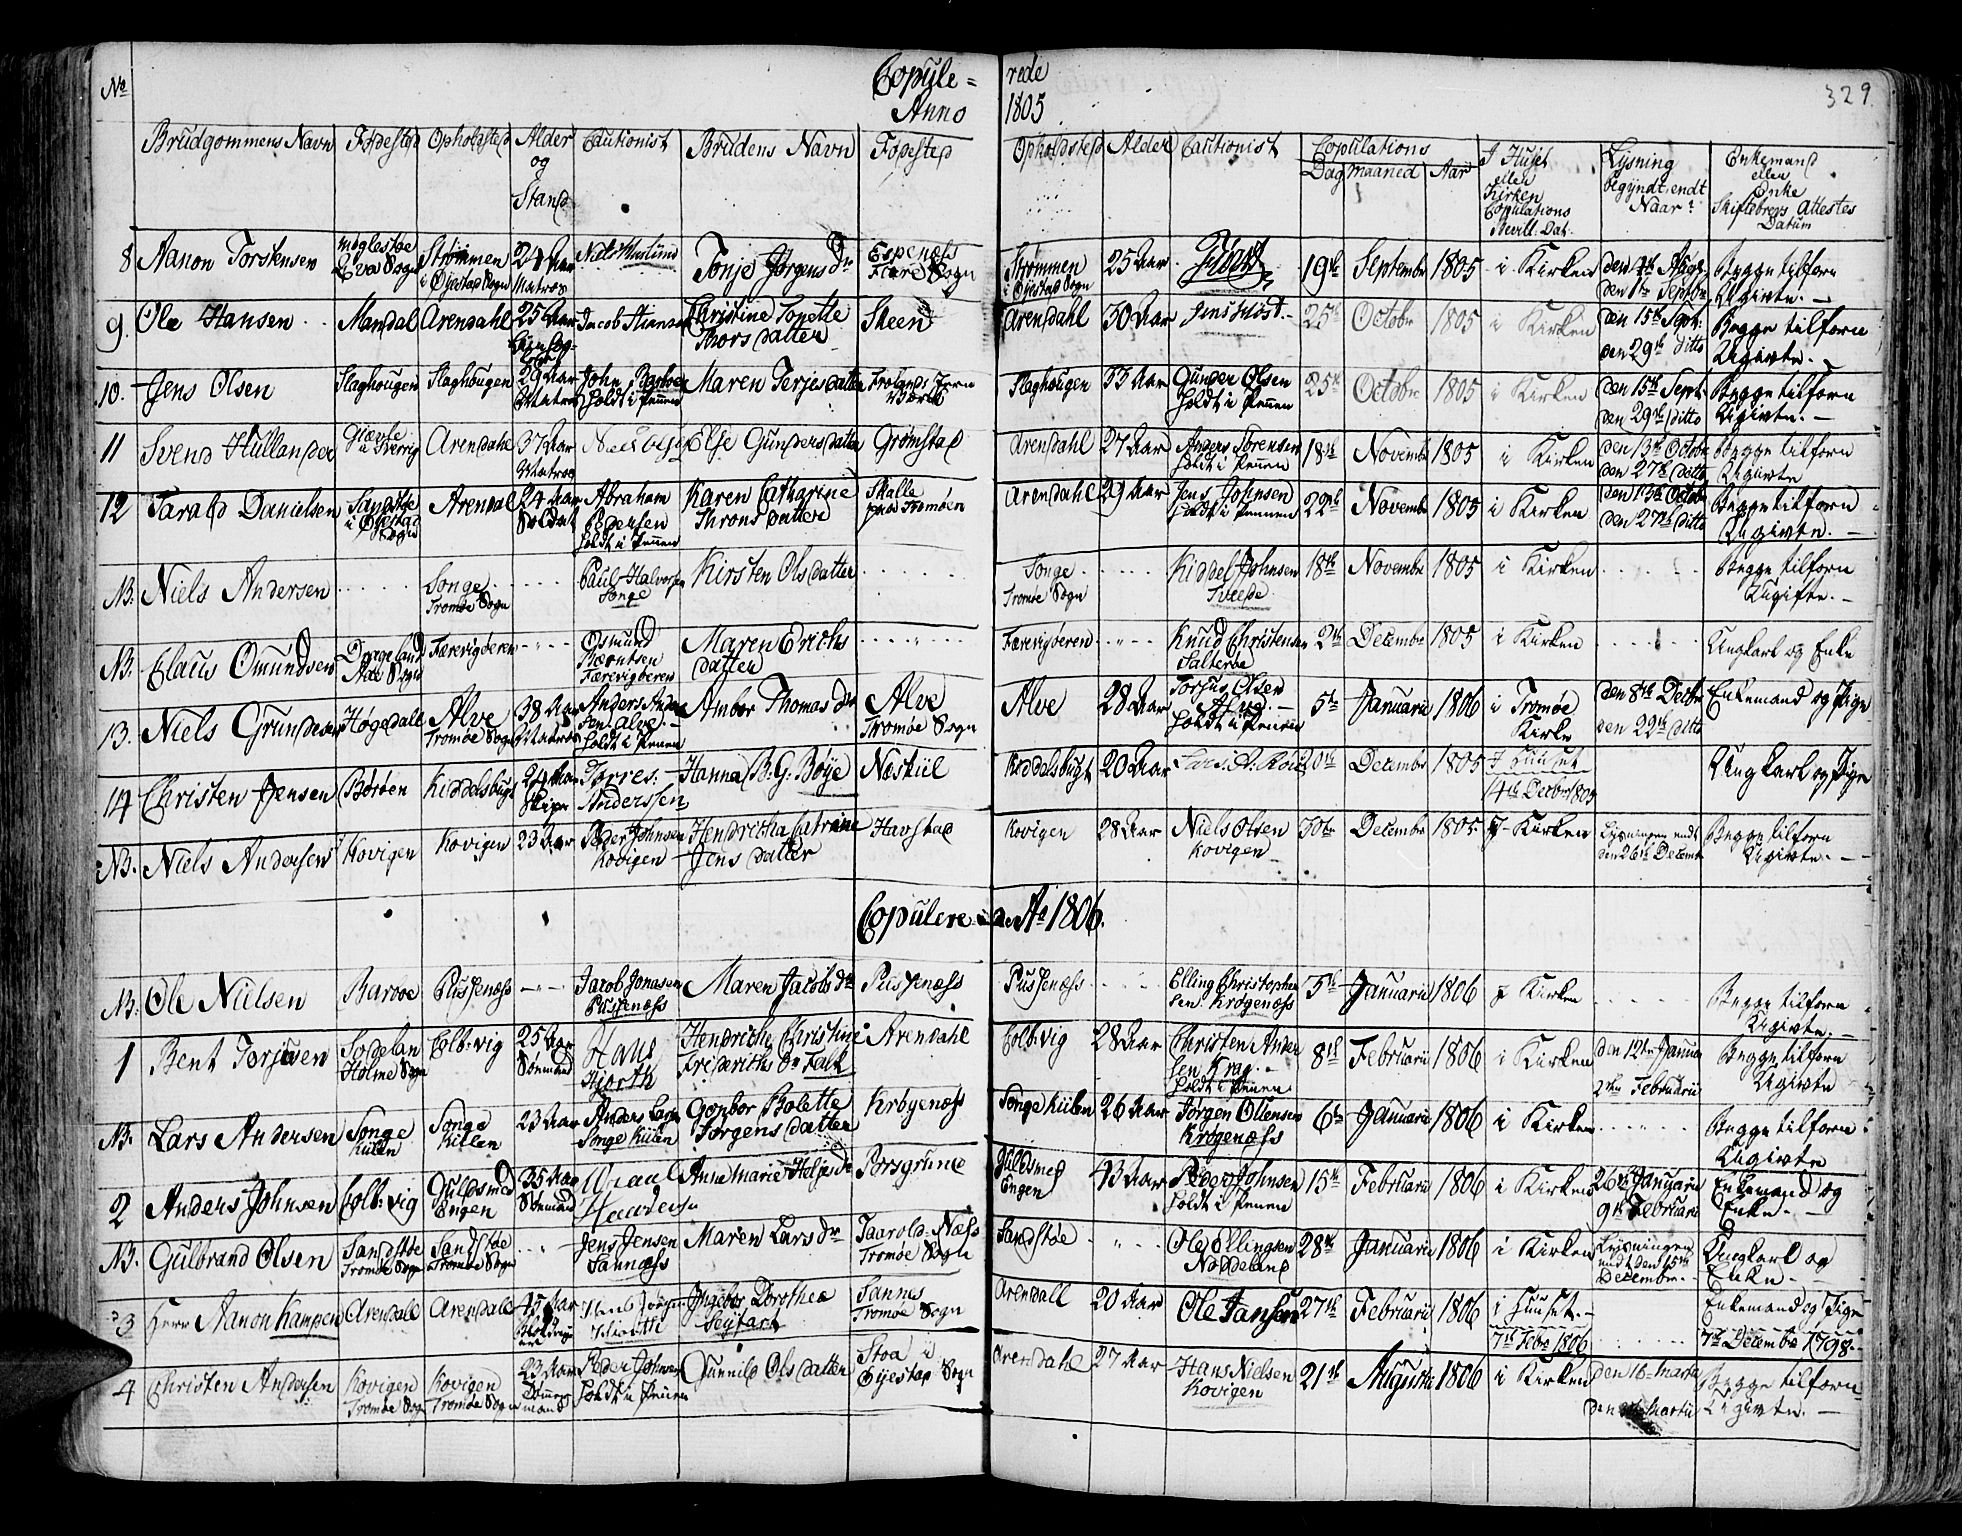 No Copule= rede 329
Anno 1805
Brudgommens Navn Fødested Opholdsted Alder og Stand Cautionist Brudens Navn Fødested Opholdsted Alder Cautionist Copulations Dag maaned Aar I Huset eller Kirken Copulations Bevill. Dat. Lysning begyndt, endt Naar? Enkemand eller Enke Skiftebrevs Attestes Datum
8 Aanon Torstensen Strømmen i Øyestad Sogn 24 Aar Matros Tonje Jørgens Dr Espenæss Fiære Sogn Strømmen i Øyestad Sogn 25 Aar 19de Septembr 1805 i Kirken Begge tilforn Ugivte. —
9. Ole Hansen Mandal Arendahl 25 Aar Jacob Christine Tonette Thors datter Skeen Arendahl 30 Aar Jens Høst. 25de Octobr 1805 i Kirken den 15de Sept: den 29de ditto Begge tilforn Ugivte. —
10. Jens Olsen Slaghougen Slaghougen 29 Aar Matros John holdt i Pennen Maren Terjesdatter Frolands Jern Værck Slaghougen 33 Aar Gunder Olsen holdt i Pennen 25de Octobr 1805 i Kirken den 15de Sept. den 29de ditto Begge tilforn Ugivte. —
11 Svend Hullander i Sverrig Arendahl 37 Aar Matros Else Gundersdatter Grømstad Arendahl 27 Aar Anders Sørensen holdt i Pennen 18de Novembr 1805 i Kirken den 13de Octobr den 27de ditto Begge tilforn Ugivte
12 Tarald Danielsen Sandstøe i Øyestad Sogn Arendal 24 Aar Soldat Abraham Pedersen holdt i Pennen Karen Catharine Throns datter Skalle paa Tromøen Arendahl 29 Aar Jens Johnsen holdt i Pennen 22de Novembr 1805 i Kirken den 13de Octobr den 27de ditto Begge tilforn Ugivte. —
NB. Niels Andersen Songe Tromøe Sogn Paul Halvorsen Songe Kirsten Ols datter Songe Tromøe Sogn Kiddel Johnsen Tveede 18de Novembr 1805 i Kirken Begge tilforn Ugifte. —
NB. Claus Omundsen Dyngeland Færevigkieren Osmund Færevigkieren Maren Erichs datter Færevigkieren Knud Christensen Salterøe 2den Decembr 1805 i Kirken Ungkarl og Enke
13. Niels Grundesen Høgedal Alve Tromøe Sogn 38 Aar Matros Anders Andersen Alve. — holdt i Pennen Ambor Thomas Dr Alve Tromøe Sogn Alve 28 Aar Torjus Olsen Alve. — holdt i Pennen 5te Januarii 1806 i Tromøe Kirke den 8de Decbr den 22de ditto Enkemand og Pige
14 Christen Jensen Børøen Kiddelsbugt 24 Aar Torres: Anderssen Hanna B. G. Bøye Næskiil Kiddelsbugt 20 Aar 20de Decembr 1805 I Huuset 14de Decbr 1805 Ungkarl og Pige
NB. Niels Andersen Kovigen Kovigen 23 Aar Peder Johnsen Kovigen Hendricka Catrine Jens datter Havstad Kovigen 28 Aar Niels Olsen Kovigen 30te Decembr 1805 I Kirken Lysningen endt den 26de Decembr Begge tilforn Ugivte. —
Copulere Ao 1806.
NB. Ole Nielsen Barboe Pussenæss Jacob Jonasen Pussenæss Maren Jacobs Dr Pussenæss Pussenæss Elling Christophersen Krøgenæss 5te Januarii 1806 I Kirken Begge tilforn Ugivte. —
1 Bent Torjusen Holme Sogn Colb:vig 25 Aar Sømand Hans Hjorth Hendriche Christine Friderichs Dr Falk Arendahl Colb:vig 28 Aar Christen Andersen Krag. holdt i Pennen 8de Februarii 1806 i Kirken den 12te Januar 2den Februarii Begge tilforn Ugivte
NB. Lars Andersen Songe Kiilen Songe Kiilen 23 Aar Anders Larsen Songe Kiilen Gonbor Bolette Jørgens datter Krøgenæss Songe Kiilen 26 Aar Jørgen Ottensen Krøgenæss 6te Januarii 1806 i Kirken Begge tilforn Ugivte
2 Anders Johnsen Colb:vig Guldsmed Engen 35 Aar Sømand Anne Marie Helje Dr Porsgrund Guldsmed Engen 43 Aar Peder Johnsen holdt i Pennen 15de Februarii 1806 i Kirken 26de Januarii 9de Februarii Enkemand og Enke. —
NB. Gulbrand Olsen Sandstøe Tromøe Sogn Sandstøe Tromøe Sogn Jens Jensen Sannæss Maren Lars Dr Taarold-Næss Tromøe Sogn Sandstøe Ole Ellingsen Naddeland 28de Januarii 1806 i Kirken Lysningen endt den 15de Decembr. Ungkarl og Enke. —
3 Herr Aanon Kampen Arendal Arendal 45 Aar Hans Jørgen Hiorth Ingebor Dorothea Seyfart Sannes Tromøe Sogn Arendall 20 Aar Ole Jansen 27de Februarii 1806 i Huuset. — 7de Febr 1806 Enkemand og Pige 7de Decembr 1798. —
4 Christen Andersen Kovigen Tromøe Sogn Kovigen Tromøe Sogn 23 Aar Peder Johnsen holdt i Pennen Gunnild Ols datter Stoa i Øyestad Sogn Arendahl 27 Aar Hans Nielsen Kovigen 21de Augusti 1806 i Kirken den 16de Martii den Martii Begge tilforn Ugivte. —